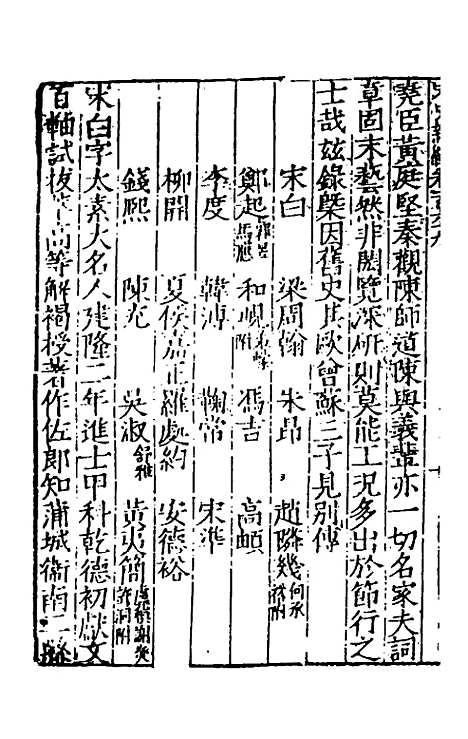 堯臣黃庭堅秦觀陳師道陳與義輩亦一切名家夫詞
章固末藝然非閎覽深研則莫能工況多出於節行之
士哉玆錄槩因舊史其歐曾蘇三子見別傳
宋白 梁周翰 朱昂 趙隣幾 何承裕附
鄭起 郭昱馬應 和峴 弟㠓附 馮吉 高頔
李度 韓溥 鞠常 宋準
柳開 夏侯嘉正 羅處約 安德裕
錢熙 陳充 吳淑 舒雅 黃夷簡 盧稹謝炎許洞附
宋白字太素大名人建隆二年進士甲科乾德初獻文
百軸試拔萃高等解褐授著作佐郎知蒲城衛南二縣